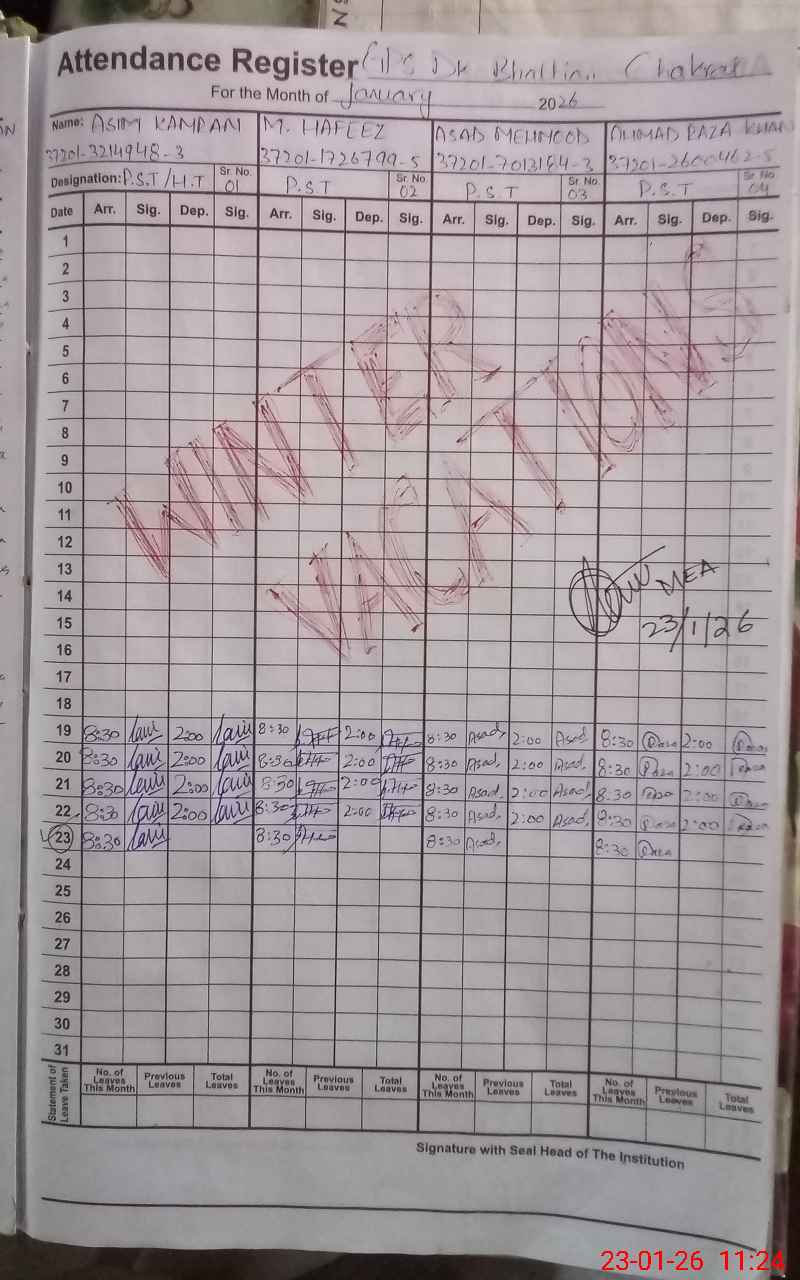 Attendance Register GPS Dk Bhattian Chakral
For the Month of January 2026
Name: ASIM KAMRAN M. HAFEEZ ASAD MEHMOOD AHMAD RAZA KHAN
37201-3214948-3 37201-1726799-5 37201-7013184-3 37201-2600462-5
Designation: P.S.T/H.T Sr. No. 01 P.S.T Sr. No. 02 P.S.T Sr. No. 03 P.S.T Sr. No. 04
Date Arr. Sig. Dep. Sig. Arr. Sig. Dep. Sig. Arr. Sig. Dep. Sig. Arr. Sig. Dep. Sig.
1
2
3
4
5
6
7
8
9
10
11
12
13
14
15
16
17
18
WINTER
VACATIONS
MEA
23/1/26
19 8:30 2:00 8:30 2:00 8:30 Asad 2:00 Asad 8:30 Raza 2:00 Raza
20 8:30 2:00 8:30 2:00 8:30 Asad 2:00 Asad 8:30 Raza 2:00 Raza
21 8:30 2:00 8:30 2:00 8:30 Asad 2:00 Asad 8:30 Raza 2:00 Raza
22 8:30 2:00 8:30 2:00 8:30 Asad 2:00 Asad 8:30 Raza 2:00 Raza
23 8:30 8:30 8:30 Asad 8:30 Raza
24
25
26
27
28
29
30
31
Statement of Leave Taken No. of Leaves This Month Previous Leaves Total Leaves No. of Leaves This Month Previous Leaves Total Leaves No. of Leaves This Month Previous Leaves Total Leaves No. of Leaves This Month Previous Leaves Total Leaves
Signature with Seal Head of The Institution
23-01-26 11:24